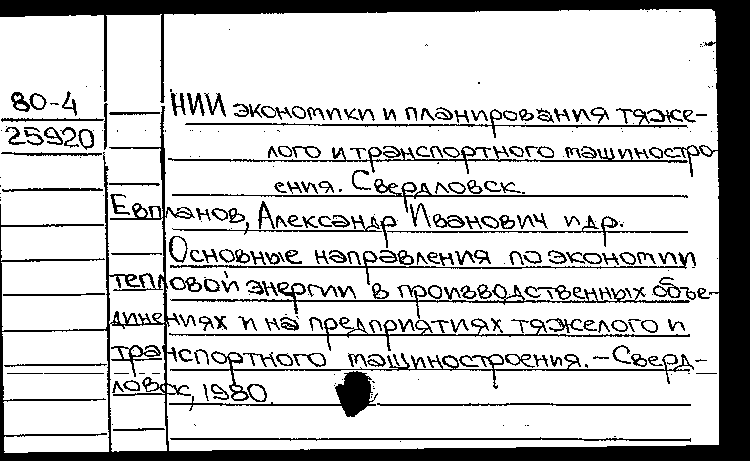 80-4
25920
НИИ экономики и планирования тяже-
лого и транспортного машиностро
ения. Свердловск.
Евпланов, Александр Иванович и др.
Основные направления по экономии
тепловой энергии в производственных объе-
динениях и на предприятиях тяжелого и
транспортного машиностроения. - Сверд-
ловск, 1980.